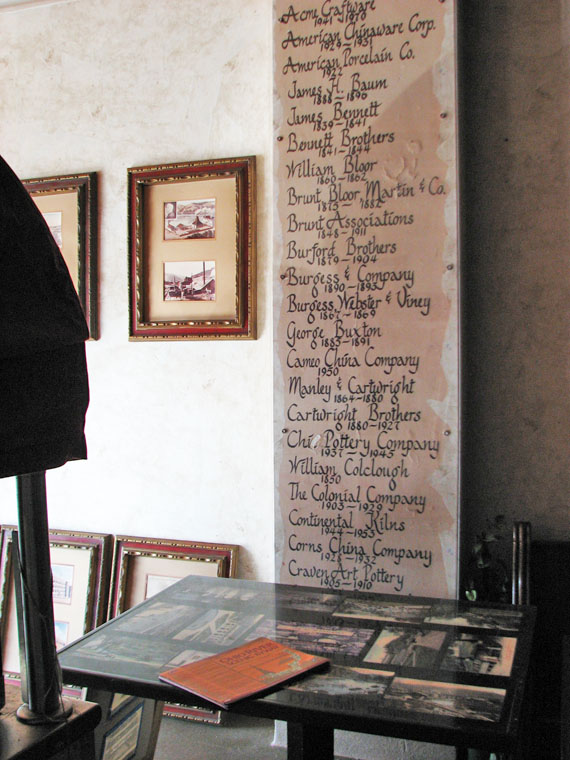 Acme Craftware
1941-1970
American Chinaware Corp.
1929-1931
American Porcelain Co.
1922
James H. Baum
1888-1890
James Bennett
1839-1841
Bennett Brothers
1841-1844
William Bloor
1860-1862
Brunt Bloor Martin & Co.
1875-1882
Brunt Associations
1848-1911
Burford Brothers
1879-1904
Burgess & Company
1890-1893
Burgess, Webster & Viney
1867-1869
George Buxton
1883-1891
Cameo China Company
1950
Manley & Cartwright
1864-1880
Cartwright Brothers
1880-1927
Chic Pottery Company
1937-1943
William Colclough
1850
The Colonial Company
1903-1929
Continental Kilns
1944-1953
Corns China Company
1928-1932
Craven Art Pottery
1905-1910